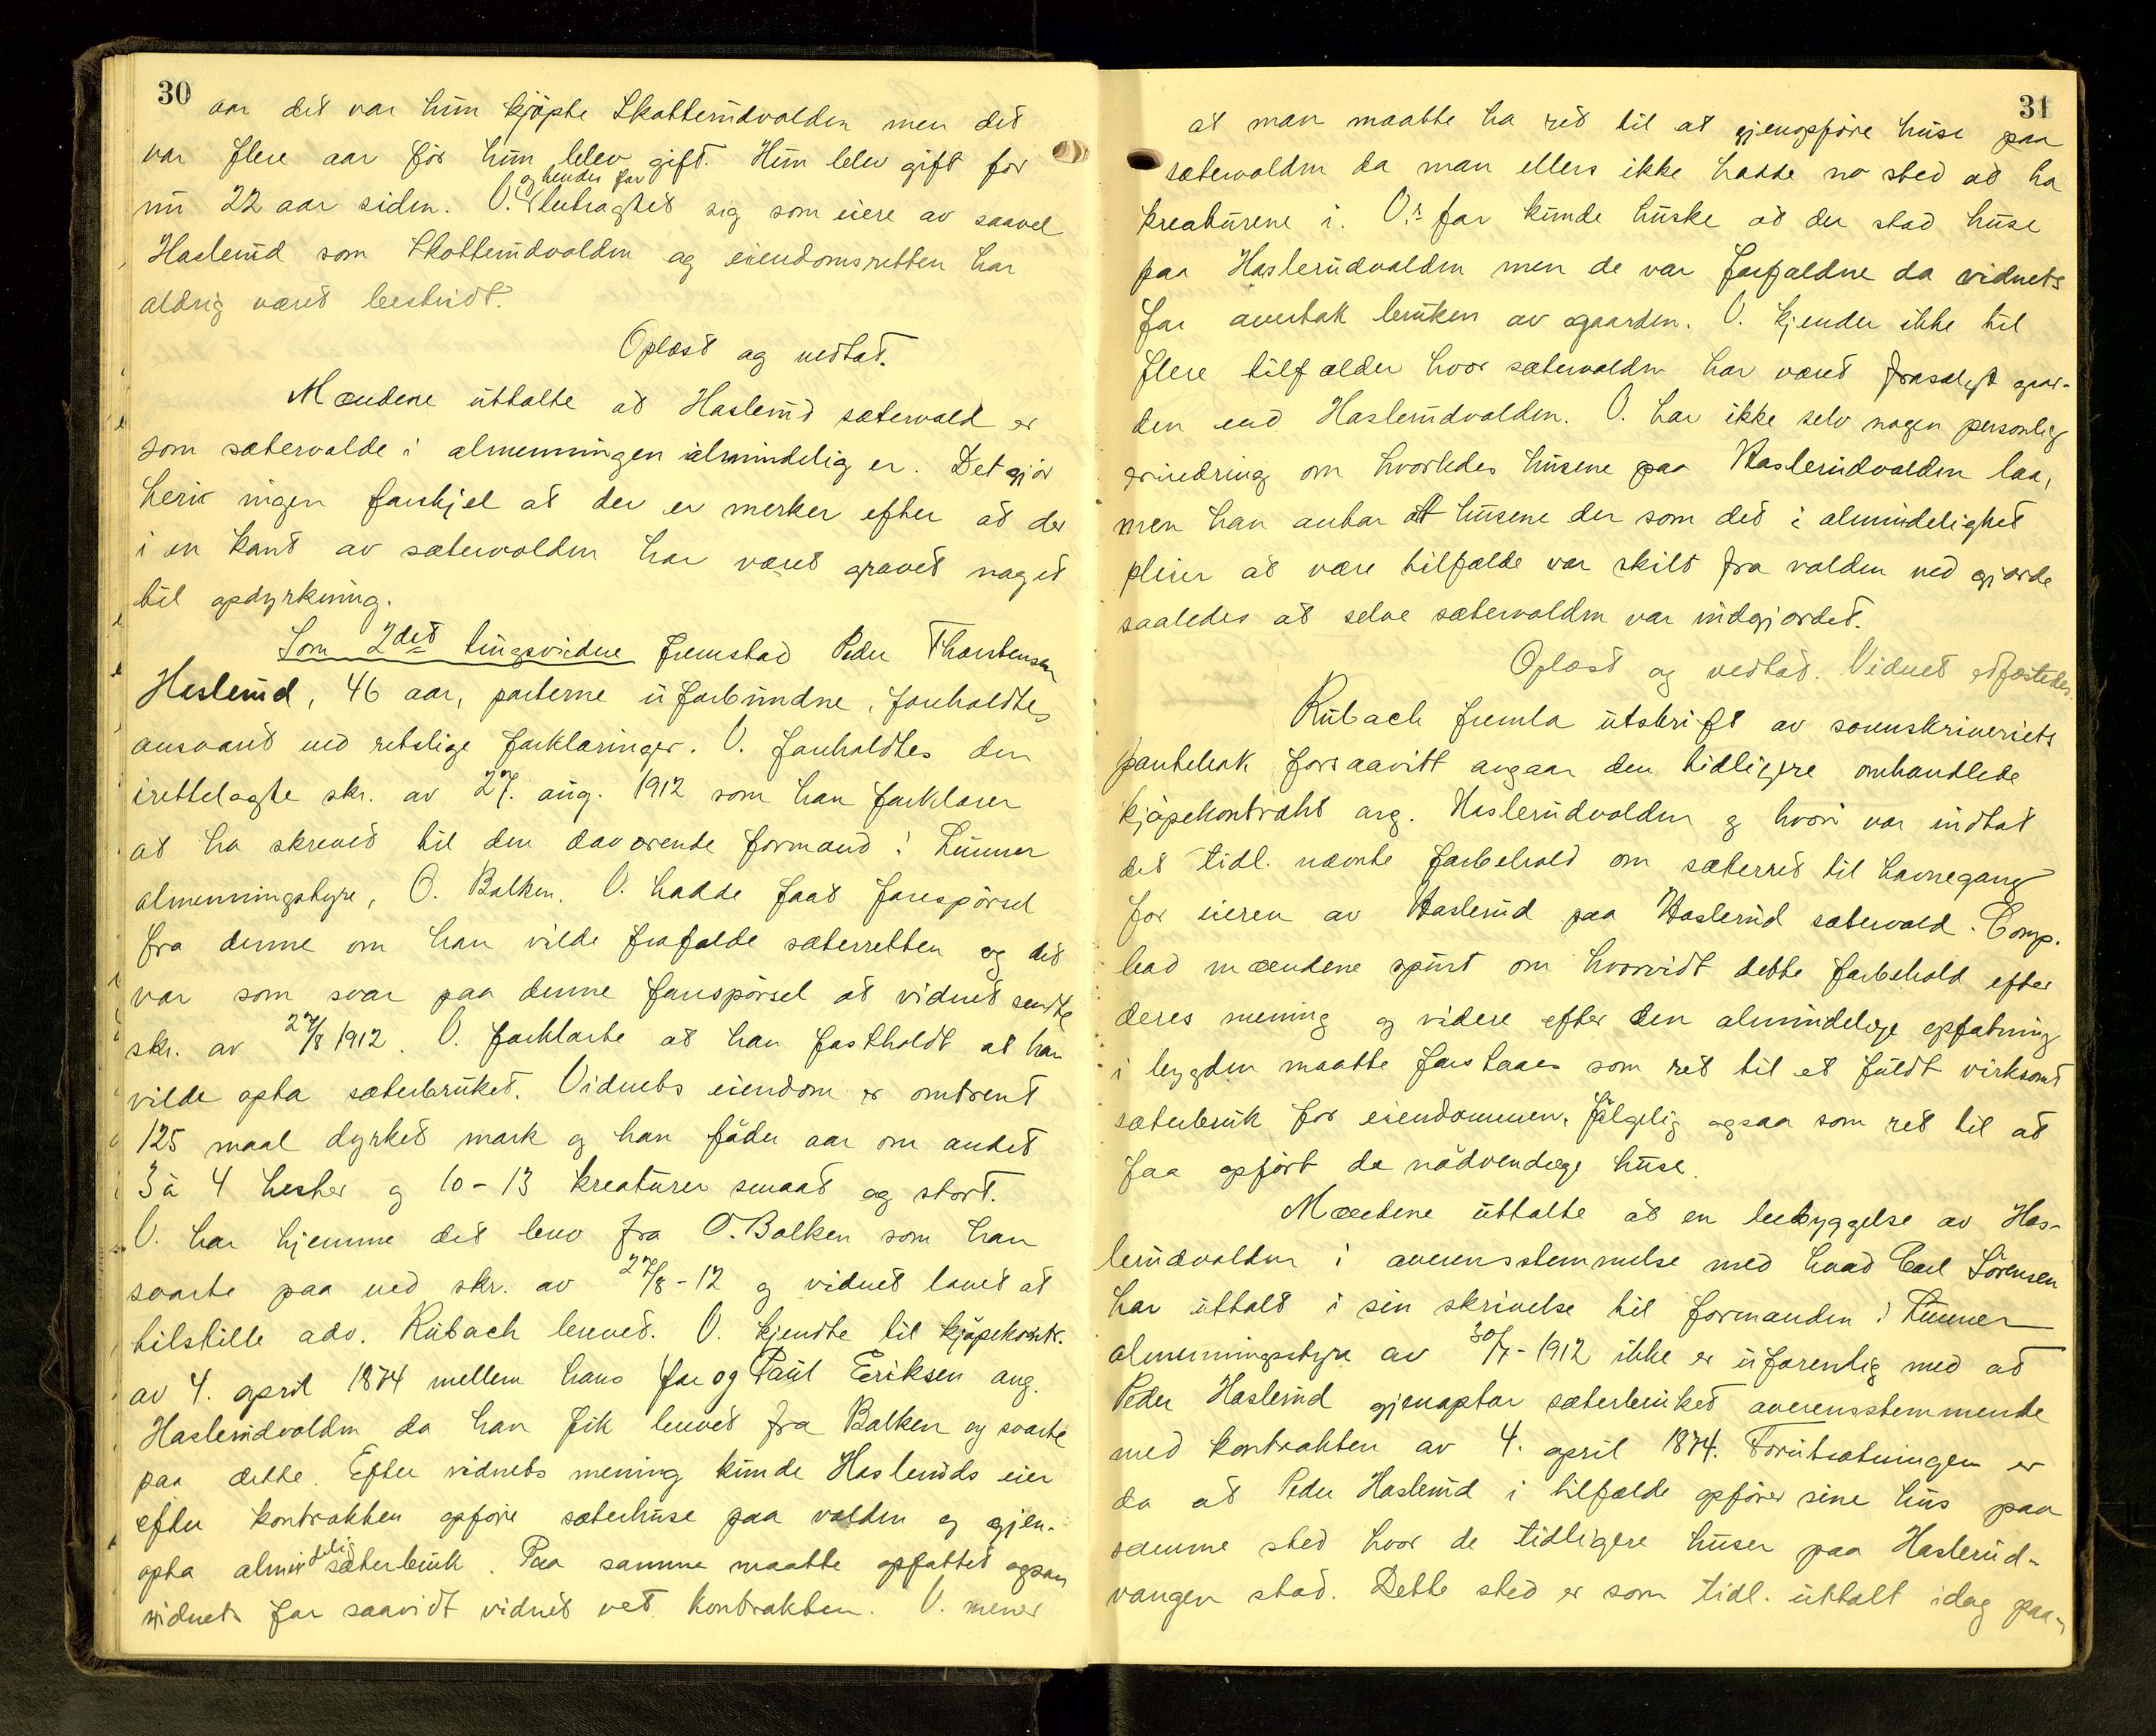 30
aar det var hun kjøpte Skotterudvolden men det
var flere aar før hun blev gift. Hun blev gift for
nu 22 aar siden. V. og hendes far betragtet sig som eiere av saavel
Haslerud som Skotterudvolden og eiendomsretten har
aldrig været bestridt.
Oplæst og vedtat.
Mændene uttalte at Haslerud sætervold er
som sætervolde i almenningen almindelig er. Det gjør
heri ingen forskjel at der er merker efter at der
i en kant av sætervolden har været gravet noget
til opdyrkning.
Som 2det tingsvidne fremstod Peder Thorstensen
Haslerud, 46 aar, parterne uforbundne, forholdtes
ansvaret ved retslige forklaringer. V. forholdtes den
irettelagte skr. av 27. aug. 1912 som han forklarer
at ha skrevet til den daværende formand i Lunner
almenningstyre, O. Balken. V. hadde faat forespørsel
fra denne om han vilde frafalde sæterretten og det
var som svar paa denne forespørsel at vidnet sendte
skr. av 27/8 1912. V. forklarte at han fastholdt at han
vilde opta sæterbruket. Vidnets eiendom er omtrent
125 maal dyrket mark og han føder aar om andet
3 à 4 hester og 10-13 kreaturer smaat og stort.
V. har hjemme det brev fra O. Balken som han
svarte paa ved skr. av 27/8-12 og vidnet lovet at
tilstille adv. Rubach brevet. V. kjendte til kjøpekontr.
av 4. april 1874 mellem hans far og Paul Eriksen ang.
Haslerudvolden da han fik brevet fra Balken og svarte
paa dette. Efter vidnets mening kunde Hasleruds eier
efter kontrakten opføre sæterhuse paa volden og gjen-
opta almindelig sæterbruk. Paa samme maatte opfattet ogsaa
vidnets far saavidt vidnet vet kontrakten. V. mener
31
at man maatte ha ret til at gjenopføre huse paa
sætervolden da man ellers ikke hadde no sted at ha
kreaturene i. V.s far kunde huske at der stod huse
paa Haslerudvolden men de var forfaldne da vidnets
far overtok bruken av gaarden. V. kjender ikke til
flere tilfælder hvor sætervolden har været frasolgt gaar-
den end Haslerudvolden. V. har ikke selv nogen personlig
erindring om hvorledes husene paa Haslerudvolden laa,
men han antar at husene der som det i almindelighet
pleier at være tilfælde var skilt fra volden ved gjærde
saaledes at selve sætervolden var indgjærdet.
Oplæst og vedtat. Vidnet edfæstedes.
Rubach fremla utskrift av sorenskriveriets
pantebok forsaavitt angaar den tidligere omhandlede
kjøpekontrakt ang. Haslerudvolden og hvori var indtat
det tidl. nævnte forbehold om sæterret til havnegang
for eieren av Haslerud paa Haslerud sætervold. Comp.
bad mændene spurt om hvorvidt dette forbehold efter
deres mening og videre efter den almindelige opfatning
i bygden maatte forstaaes som ret til et fuldt virksomt
sæterbruk for eiendommen, følgelig ogsaa som ret til at
faa opført de nødvendige huse.
Mændene uttalte at en bebyggelse av Has-
lerudvolden i overensstemmelse med hvad Carl Sørensen
har uttalt i sin skrivelse til formanden i Lunner
almenningsstyre av 30/7-1912 ikke er uforenlig med at
Peder Haslerud gjenoptar sæterbruket overensstemmende
med kontrakten av 4. april 1874. Forutsætningen er
da at Peder Haslerud i tilfælde opfører sine hus paa
samme sted hvor de tidligere huser paa Haslerud-
vangen stod. Dette sted er som tidl. uttalt idag paa-